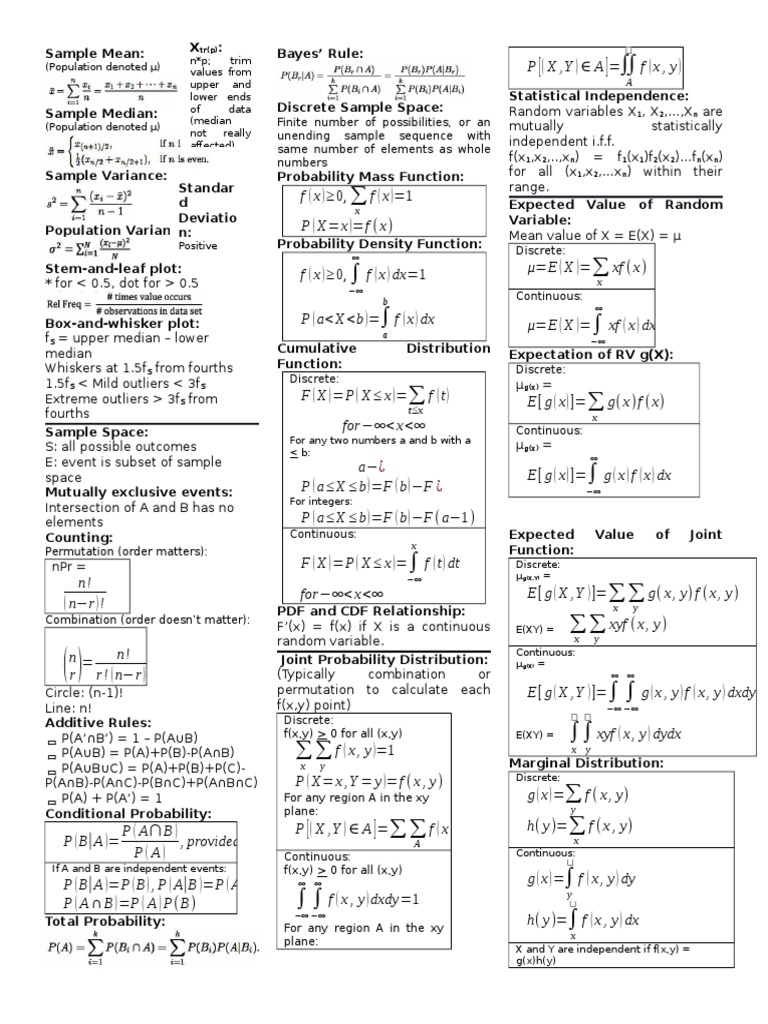 Sample Mean:
(Population denoted μ)
x̄ = ∑ᵢ₌₁ⁿ xᵢ/n = (x₁ + x₂ + ⋯ + xₙ)/n
Sample Median:
(Population denoted μ)
x̃ = { x₍ₙ₊₁₎/₂, if n i
½(xₙ/₂ + xₙ/₂₊₁), if n is even.
Sample Variance:
s² = ∑ᵢ₌₁ⁿ (xᵢ − x̄)²/(n − 1)
Population Varian
σ² = ∑ᵢ₌₁ᴺ (xᵢ−μ)²/N
X̄tr(p):
n*p; trim
values from
upper and
lower ends
of data
(median
not really
affected)
Standar
d
Deviatio
n:
Positive
Stem-and-leaf plot:
* for < 0.5, dot for > 0.5
Rel Freq = # times value occurs / # observations in data set
Box-and-whisker plot:
fₛ = upper median – lower
median
Whiskers at 1.5fₛ from fourths
1.5fₛ < Mild outliers < 3fₛ
Extreme outliers > 3fₛ from
fourths
Sample Space:
S: all possible outcomes
E: event is subset of sample
space
Mutually exclusive events:
Intersection of A and B has no
elements
Counting:
Permutation (order matters):
nPr =
n!/(n−r)!
Combination (order doesn't matter):
(n r) = n!/(r!(n−r)
Circle: (n-1)!
Line: n!
Additive Rules:
P(A’∩B’) = 1 – P(A∪B)
P(A∪B) = P(A)+P(B)-P(A∩B)
P(A∪B∪C) = P(A)+P(B)+P(C)-
P(A∩B)-P(A∩C)-P(B∩C)+P(A∩B∩C)
P(A) + P(A’) = 1
Conditional Probability:
P(B|A)= P(A∩B)/P(A), provided
If A and B are independent events:
P(B|A)=P(B), P(A|B)=P(A
P(A∩B)=P(A)P(B)
Total Probability:
P(A) = ∑ᵢ₌₁ᵏ P(Bᵢ ∩ A) = ∑ᵢ₌₁ᵏ P(Bᵢ)P(A|Bᵢ).
Bayes’ Rule:
P(Bᵣ|A) = P(Bᵣ ∩ A)/∑ᵢ₌₁ᵏ P(Bᵢ ∩ A) = P(Bᵣ)P(A|Bᵣ)/∑ᵢ₌₁ᵏ P(Bᵢ)P(A|Bᵢ)
Discrete Sample Space:
Finite number of possibilities, or an
unending sample sequence with
same number of elements as whole
numbers
Probability Mass Function:
f(x)≥0, ∑ₓ f(x)=1
P(X=x)=f(x)
Probability Density Function:
f(x)≥0, ∫₋∞^∞ f(x)dx=1
P(a<X<b)=∫ₐᵇ f(x)dx
Cumulative Distribution
Function:
Discrete:
F(X)=P(X≤x)=∑t≤x f(t)
for−∞<x<∞
For any two numbers a and b with a
≤ b:
a−¿
P(a≤X≤b)=F(b)−F¿
For integers:
P(a≤X≤b)=F(b)−F(a−1)
Continuous:
F(X)=P(X≤x)=∫₋∞ˣ f(t)dt
for−∞<x<∞
PDF and CDF Relationship:
F’(x) = f(x) if X is a continuous
random variable.
Joint Probability Distribution:
(Typically combination or
permutation to calculate each
f(x,y) point)
Discrete:
f(x,y) ≥ 0 for all (x,y)
∑ₓ∑y f(x,y)=1
P(X=x,Y=y)=f(x,y)
For any region A in the xy
plane:
P[(X,Y)∈A]=∑∑A f(x
Continuous:
f(x,y) ≥ 0 for all (x,y)
∫₋∞^∞ ∫₋∞^∞ f(x,y)dxdy=1
For any region A in the xy
plane:
P[(X,Y)∈A]=∬A f(x,y)
Statistical Independence:
Random variables X₁, X₂,…,Xₙ are
mutually statistically
independent i.f.f.
f(x₁,x₂,..,xₙ) = f₁(x₁)f₂(x₂)…fₙ(xₙ)
for all (x₁,x₂,…xₙ) within their
range.
Expected Value of Random
Variable:
Mean value of X = E(X) = μ
Discrete:
μ=E(X)=∑ₓ xf(x)
Continuous:
μ=E(X)=∫₋∞^∞ xf(x)dx
Expectation of RV g(X):
Discrete:
μg(x) =
E[g(x)]=∑ₓ g(x)f(x)
Continuous:
μg(x) =
E[g(x)]=∫₋∞^∞ g(x)f(x)dx
Expected Value of Joint
Function:
Discrete:
μg(x,y) =
E[g(X,Y)]=∑ₓ∑y g(x,y)f(x,y)
E(XY) = ∑ₓ∑y xyf(x,y)
Continuous:
μg(x) =
E[g(X,Y)]=∫₋∞^∞ ∫₋∞^∞ g(x,y)f(x,y)dxdy
E(XY) = ∫ₓ∫y xyf(x,y)dydx
Marginal Distribution:
Discrete:
g(x)=∑y f(x,y)
h(y)=∑ₓ f(x,y)
Continuous:
g(x)=∫y f(x,y)dy
h(y)=∫ₓ f(x,y)dx
X and Y are independent if f(x,y) =
g(x)h(y)